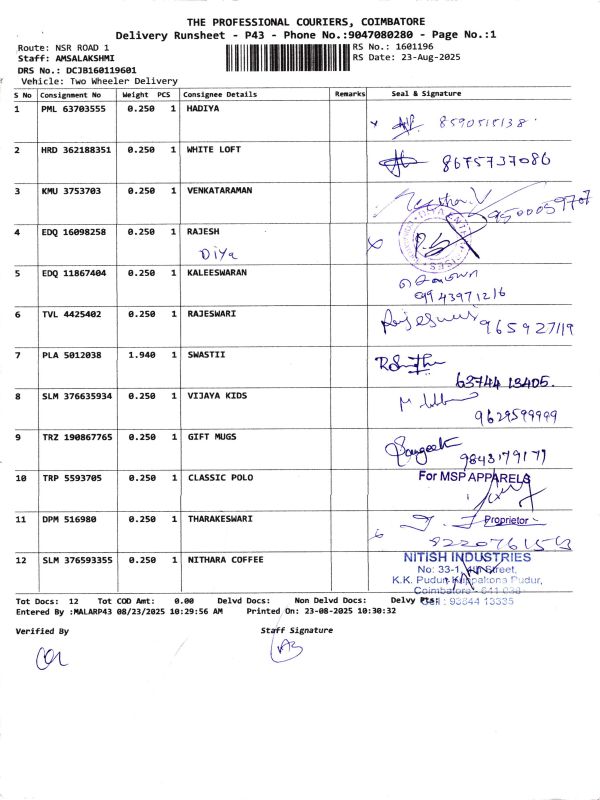 THE PROFESSIONAL COURIERS, COIMBATORE
Delivery Runsheet - P43 - Phone No.:9047080280 - Page No.:1
Route: NSR ROAD 1
RS No.: 1601196
Staff: AMSALAKSHMI
RS Date: 23-Aug-2025
DRS No.: DCJB160119601
Vehicle: Two Wheeler Delivery
S No Consignment No Weight PCS Consignee Details Remarks Seal & Signature
1 PML 63703555 0.250 1 HADIYA
2 HRD 362188351 0.250 1 WHITE LOFT 8675737086
3 KMU 3753703 0.250 1 VENKATARAMAN 9500059707
4 EDQ 16098258 0.250 1 RAJESH
Diya
5 EDQ 11867404 0.250 1 KALEESWARAN
9943971216
6 TVL 4425402 0.250 1 RAJESWARI Rajeswari 965927119
7 PLA 5012038 1.940 1 SWASTII
63744 13405.
8 SLM 376635934 0.250 1 VIJAYA KIDS
9629599999
9 TRZ 190867765 0.250 1 GIFT MUGS Sangeeth 9843179177
10 TRP 5593705 0.250 1 CLASSIC POLO For MSP APPARELS
11 DPM 516980 0.250 1 THARAKESWARI Proprietor
8220761543
12 SLM 376593355 0.250 1 NITHARA COFFEE NITISH INDUSTRIES
No: 33-1, Street,
K.K. Pudur, Kuppakona Pudur,
Coimbatore - 641 038
Tot Docs: 12 Tot COD Amt: 0.00 Delvd Docs: Non Delvd Docs: Delvy Cell : 93644 13335
Entered By :MALARP43 08/23/2025 10:29:56 AM Printed On: 23-08-2025 10:30:32
Verified By Staff Signature